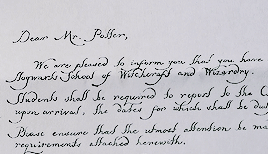 Dear Mr. Potter,
We are pleased to inform you that you have
Hogwarts School of Witchcraft and Wizardry.
Students shall be required to report to the
upon arrival, the dates for which shall be
Please ensure that the utmost attention be
requirements attached herewith.